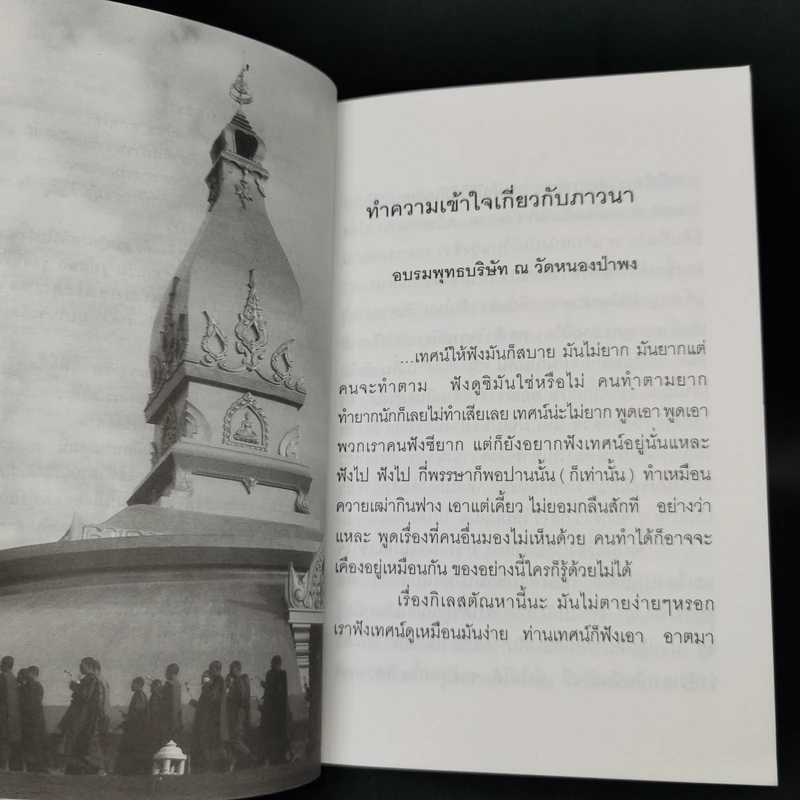 ทำความเข้าใจเกี่ยวกับภาวนา
อบรมพุทธบริษัท ณ วัดหนองป่าพง
...เทศน์ให้ฟังมันก็สบาย มันไม่ยาก มันยากแต่
คนจะทำตาม ฟังดูซิมันใช่หรือไม่ คนทำตามยาก
ทำยากนักก็เลยไม่ทำเสียเลย เทศน์น่ะไม่ยาก พูดเอา พูดเอา
พวกเราคนฟังซียาก แต่ก็ยังอยากฟังเทศน์อยู่นั่นแหละ
ฟังไป ฟังไป กี่พรรษาก็พอปานนั้น ( ก็เท่านั้น ) ทำเหมือน
ควายเฒ่ากินฟาง เอาแต่เคี้ยว ไม่ยอมกลืนสักที อย่างว่า
แหละ พูดเรื่องที่คนอื่นมองไม่เห็นด้วย คนทำได้ก็อาจจะ
เคืองอยู่เหมือนกัน ของอย่างนี้ใครก็รู้ด้วยไม่ได้
เรื่องกิเลสตัณหานี้นะ มันไม่ตายง่ายๆหรอก
เราฟังเทศน์ดูเหมือนมันง่าย ท่านเทศน์ก็ฟังเอา อาตมา